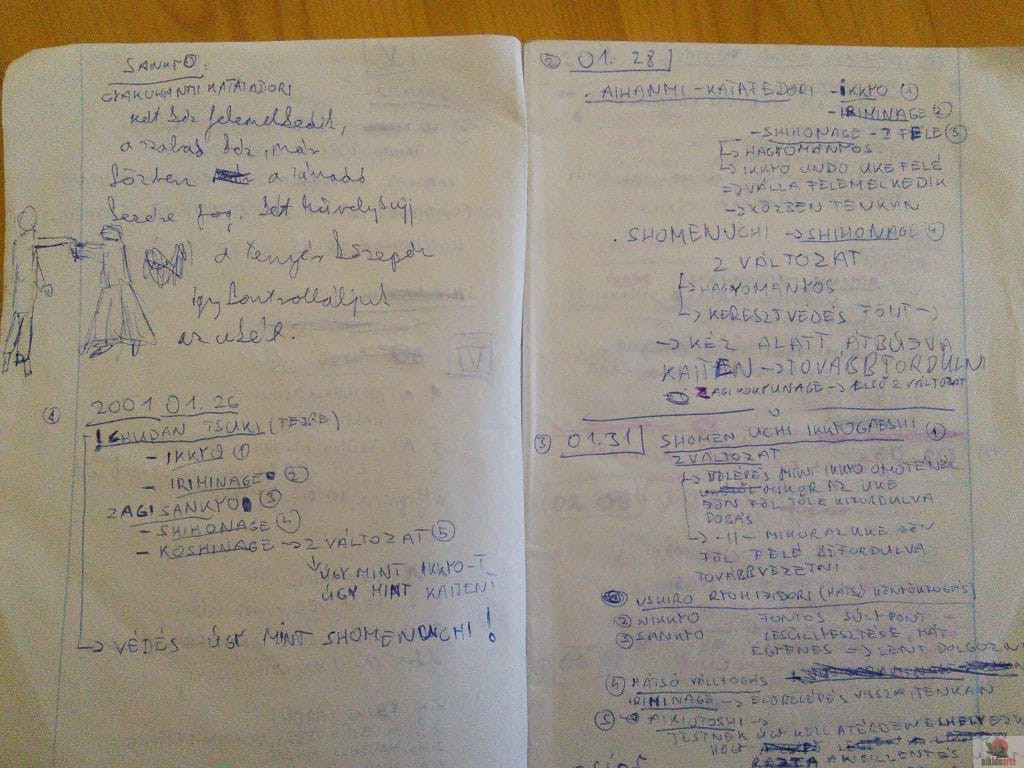 SANKYO:
GYAKUHANMI KATATADORI
két kéz felemelkedik,
a szabad kéz, már
közben a támadó
kezére fog. Két hüvelykujj
a tenyér közepén
így kontrolláljuk
az ukét.
① 2001 01.26
! CHUDAN TSUKI (TEJRE)
- IKKYO ①
- IRIMINAGE ②
ZAGI SANKYO ③
- SHIHONAGE ④
- KOSHINAGE → 2 VÁLTOZAT ⑤
ÚGY MINT IKKYO-T
ÚGY MINT KAITENT
→ VÉDÉS ÚGY MINT SHOMENUCHI !
② 01. 28
. AIHANMI - KATATEDORI - IKKYO ①
- IRIMINAGE ②
- SHIHONAGE - 2 FELE ③
→ HAGYOMÁNYOS
→ IKKYO UNDO UKE FELÉ
→ VÁLLA FELEMELKEDIK
→ KÖZBEN TENKAN
. SHOMENUCHI → SHIHONAGE ④
2 VÁLTOZAT
→ HAGYOMÁNYOS
→ KERESZTVÉDÉS FÖNT →
→ KÉZ ALATT ÁTBÚJVA
KAITEN → TOVÁBBFORDULNI
ZAGI KOKYUNAGE → ELSŐ 2 VÁLTOZAT
③ 01.31 SHOMEN UCHI IKKYOGAESHI ①
2 VÁLTOZAT
→ BELÉPÉS MINT IKKYO OMOTENÉL
MIKOR AZ UKE
JÖN FÖL TŐLE KIFORDULVA
DOBÁS
→ -11- MIKOR AZ UKE JÖN
FÖL FELÉ BEFORDULVA
TOVÁBBVEZETNI
USHIRO RYOHIJIDORI (HÁTSÓ KÖNYÖKFOGÁS)
② NIKKYO FONTOS SÚLYPONT
③ SANKYO LESÜLLYESZTÉSE, HÁT
EGYENES → LENT DOLGOZNI
④ HÁTSÓ VÁLLFOGÁS
IRIMINAGE → ELŐRELÉPÉS VISSZA, TENKAN
⑤ AIKIOTOSHI →
TESTNEK ÚGY KELL
HOGY
RÁZTA
aikidoarts